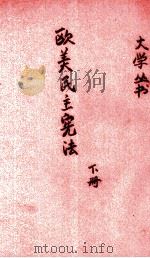 大学丛书
欧美民主宪法
下册
mtoou.info